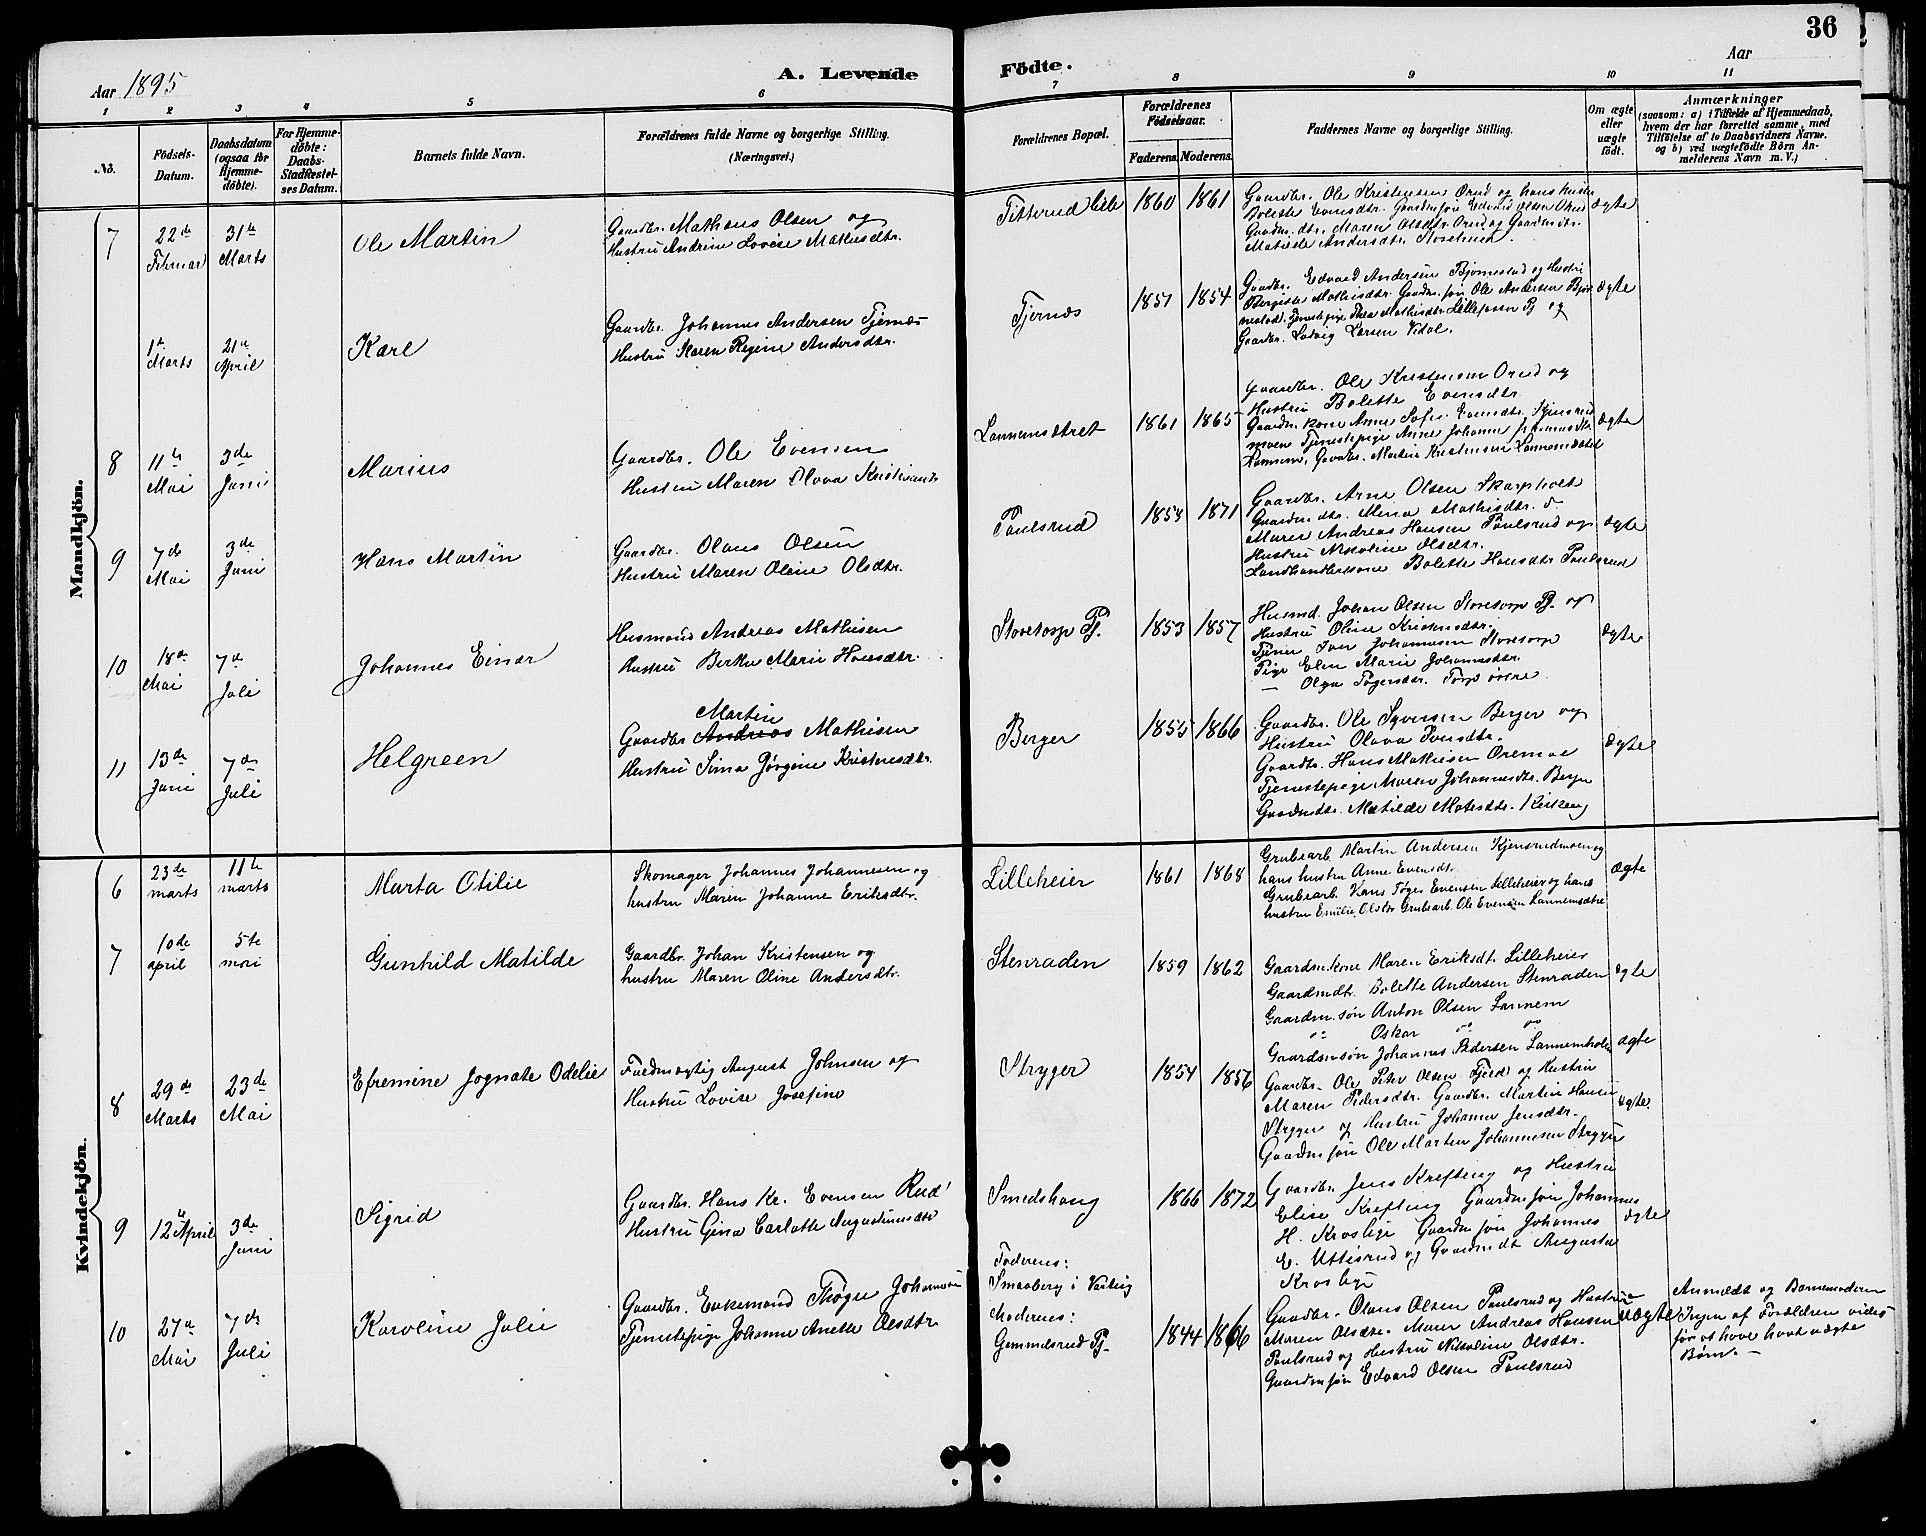 36
Aar 1895
A. Levende
Födte.
Aar
1 2 3 4 5 6 7 8 9 10 11
No.
Födsels-
Datum.
Daabsdatum
(ogsaa for
Hjemme-
döbte).
For Hjemme-
döbte:
Daabs-
Stadfæstel-
ses Datum.
Barnets fulde Navn.
Forældrenes fulde Navne og borgerlige Stilling.
(Næringsvei.)
Forældrenes Bopæl.
Forældrenes
Födselsaar.
Faderens. Moderens.
Faddernes Navne og borgerlige Stilling.
Om ægte
eller
uægte
født.
Anmærkninger
(saasom: a) i Tilfælde af Hjemmedaab,
hvem der har forrettet samme, med
Tilföielse af to Daabsvidners Navne,
og b) ved uægtefödte Börn An-
melderens Navn m. V.)
Mandkjön.
7
22de
Februar
31te
Marts
Ole Martin
Gaardbr. Mathæus Olsen og
Hustru Andrine Lovise Mathisdtr.
Titterud lille
1860 1861
Gaardbr. Ole Kristensen Orud og hans hustru
Bolette Evensdtr. Gaardmsøn Edvard Olsen Orud
Gaardm.dtr. Maren Olsdtr. Orud og Gaardmdtr.
Matilde Andersdtr.
ægte
1te
Marts
21de
April
Karl
Gaardbr. Johannes Andersen Tjernæs
Hustru Karen Regine Andersdtr.
Tjernæs
1851 1854
Gaardbr. Edvard Andersen Bjørnestad og Hustru
Mathisdtr. Gaardm. søn Ole Andersen Bjør
nestad. Tjenestepige Thea Mathisdtr. Pj og
Gaardbr. Ludvig Larsen Vidal.
ægte
8
11te
Mai
3de
Juni
Marius
Gaardbr. Ole Evensen
Hustru Maren Olava Kristiansdtr
Lannemsætret
1861 1865
Gaardbr. Ole Kristensen Orud og
Hustru Bolette Evensdtr.
Gaardm. kone Anne Sofie Evensdtr. Kjensrud
moen Tjenestepige Anne Johanne Johannesdtr
Lannem, Gaardbr. Martin Kristensen Lannemsætret
ægte
9
7de
Mai
3de
Juni
Hans Martin
Gaardbr. Olaus Olsen
Hustru Maren Oline Olsdtr.
Paulsrud
1853 1871
Gaardbr. Arne Olsen Skarpholt
Gaardm. dtr. Mina Mathisdtr.
Murer Andreas Hansen Paulsrud og
Hustru Nikoline Olsdtr.
Landhandlerkone Bolette Hansdtr Paulsrud
ægte
10
18de
Mai
7de
Juli
Johannes Einar
Husmand Andreas Mathisen
Hustru Berthe Marie Hansdtr.
Storetorp Pj.
1853 1857
Husmd. Johan Olsen Storetorp Pj. og
Hustru Oline Kristensdtr.
Tjener Iver Johannesen Storetorp
Pige Elen Marie Johannesdtr.
— Olga Tøgersdtr. Torp østre
ægte
11
13de
Juni
7de
Juli
Helgreen
Martin
Gaardbr Andreas Mathisen
Hustru Sina Jørgine Kristensdtr.
Berger
1855 1866
Gaardbr. Ole Syversen Berger og
Hustru Olava Iversdtr.
Gaardbr. Hans Mathisen Oremoe
Tjenestepige Maren Johannesdtr. Berger
Gaardmdtr. Matilde Matisdtr. Kirkeng
ægte
Kvindekjön.
6
23de
marts
11te
marts
Marta Otilie
Skomager Johannes Johannesen og
hustru Maren Johanne Eriksdtr.
Lilleheier
1861 1868
Grubearb. Martin Andersen Kjensrudmoen og
hans hustru Anne Evensdt.
Grubearb. Hans Tøger Evensen Lilleheier og hans
hustru Emilie Olsdtr Grubearb. Ole Evensen Lannemsætre
ægte
7
10de
april
5te
mai
Gunhild Matilde
Gaardbr. Johan Kristensen og
hustru Maren Oline Andersdtr.
Stenraden
1859 1862
Gaardm.kone Maren Eriksdt. Lilleheier
Gaardmdt. Bolette Andersen Stenraden
Gaardm.søn Anton Olsen Lannem
" Oskar " "
Gaardmsøn Johannes Pedersen Lannemholen
ægte
ægte
8
29de
Marts
23de
Mai
Efremine Jognate Odelie
Fuldmægtig August Johnsen og
Hustru Lovise Josefine
Stryger
1854 1856
Gaardbr. Ole Peter Olsen Fjeld og Hustru
Maren Pedersdtr. Gaardbr. Martin Hansen
Stryger og Hustru Johanne Jensdtr.
Gaardmsøn Ole Martin Johannesen Stryger
ægte
9
12te April
3de
Juni
Sigrid
Gaardbr. Hans Kr. Evensen Rud
Hustru Gina Carlotte Augustinusdtr
Smedshaug
1866 1872
Gaardbr. Jens Krefting og Hustru
Elise Krefting Gaardm søn Johannes
H. Krosbye Gaardm søn Johannes
E. Uttisrud og Gaardmdt Augusta
Krosbye
ægte
10
27de
Mai
7de
Juli
Karoline Julie
Gaardbr. Enkemand Thøger Johannesen
Tjenestepige Johanne Anette Olsdtr.
Faderens:
Smaaberg i Varteig
Moderens:
Gammelsrud Pj.
1844 1866
Gaardbr. Olaus Olsen Paulsrud og Hustru
Maren Olsdtr. Murer Andreas Hansen
Paulsrud og Hustru Nikoline Olsdtr.
Gaardm søn Edvard Olsen Paulsrud
uægte
Anmeldt af Barnemoderen
Ingen af Forældren vides
før at have havt uægte
Børn. —